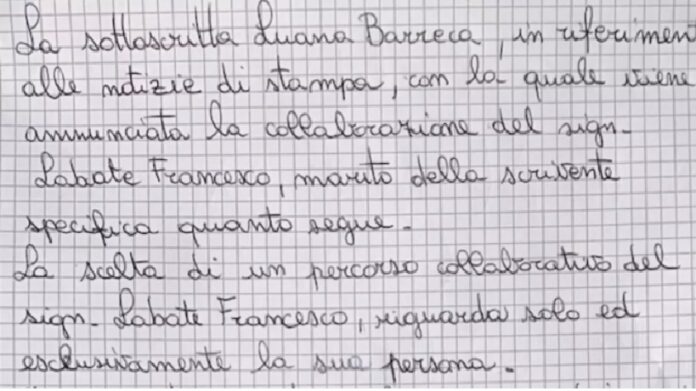 La sottoscritta Luana Barreca, in riferimen
alle notizie di stampa, con la quale viene
annunciata la collaborazione del sign.
Labate Francesco, marito della scrivente
specifica quanto segue.
La scelta di un percorso collaborativo del
sign. Labate Francesco, riguarda solo ed
esclusivamente la sua persona.